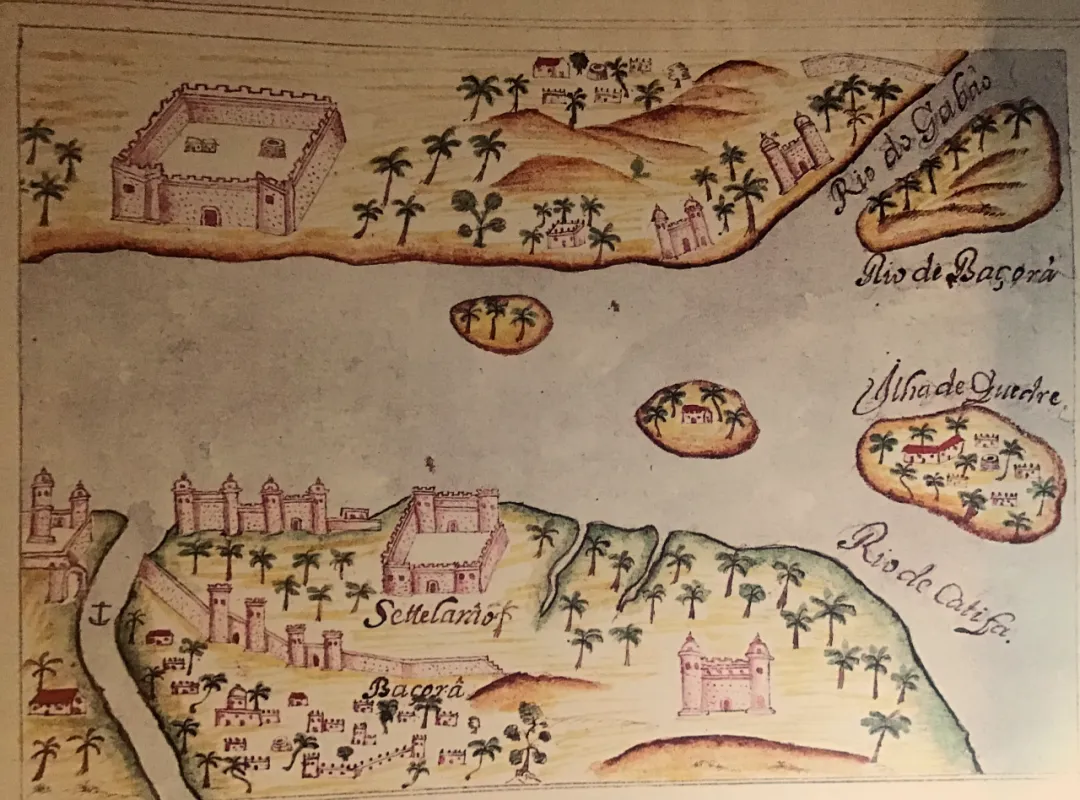 Rio do Gabâo
Rio de Baçorâ
Ilha de Quedre
Rio de Catifa.
Settelarîo
Baçorâ